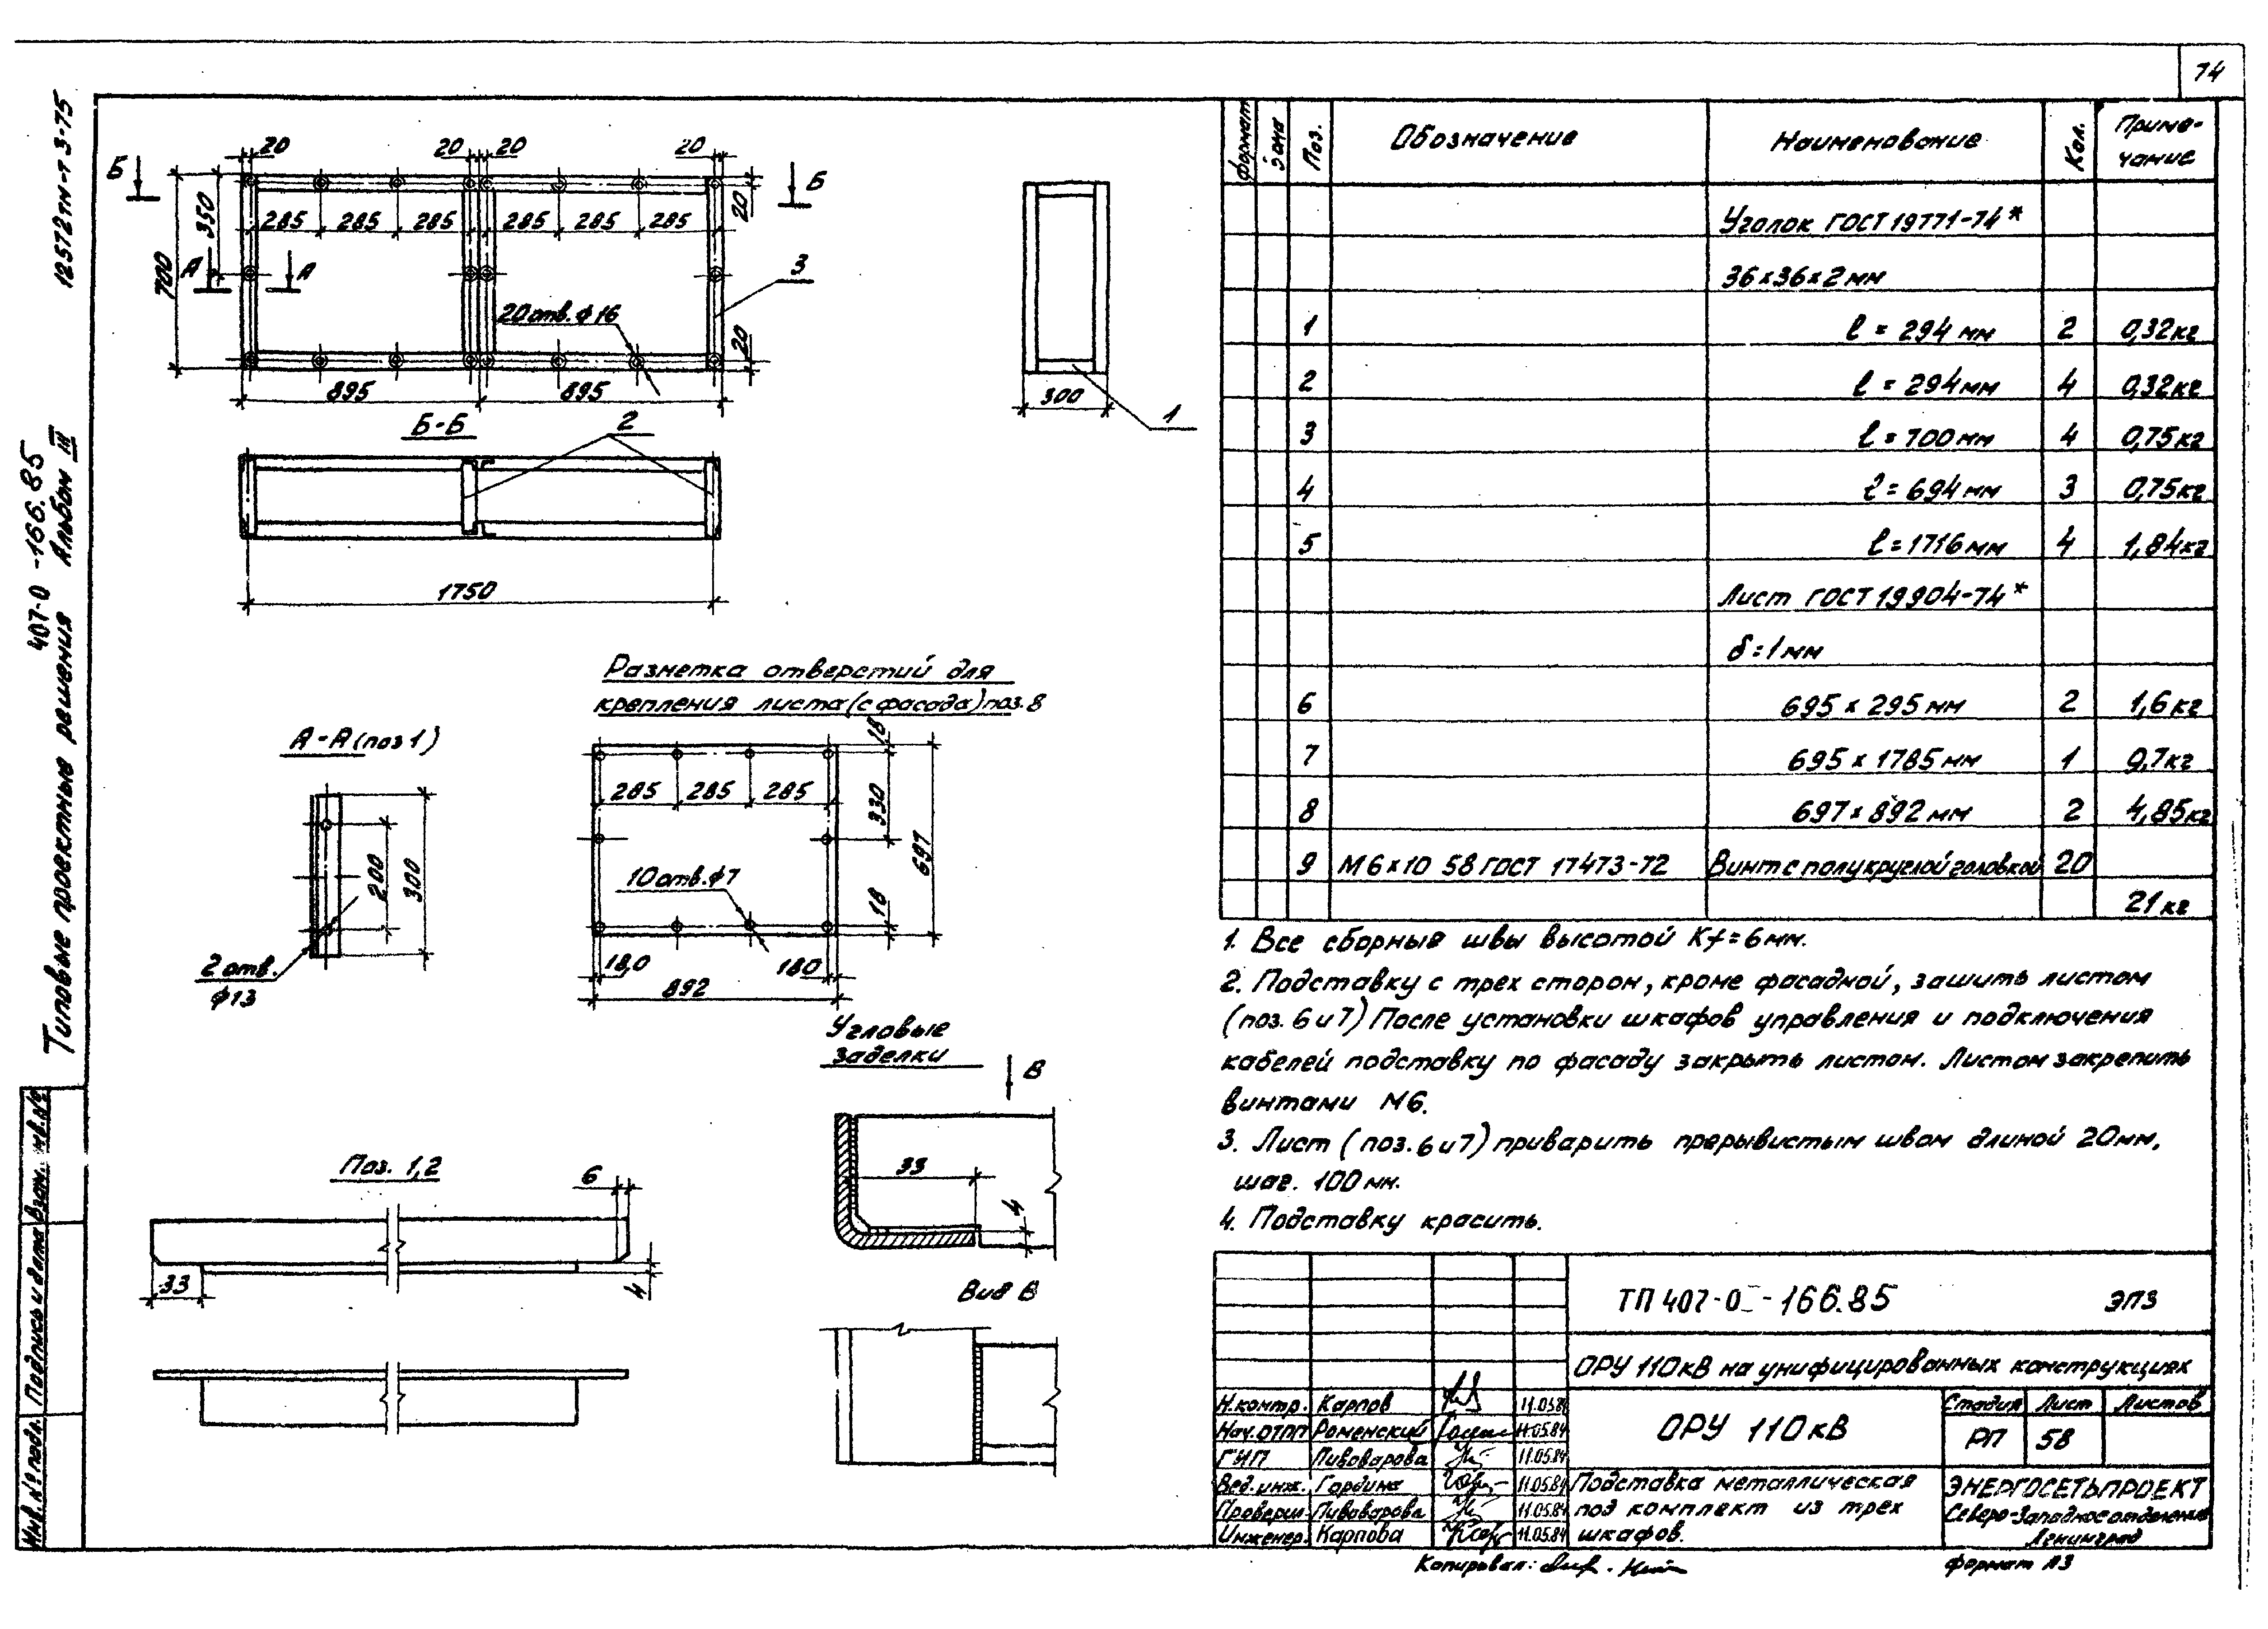 74
12572тм-т3-75
407-0 -166.85
Типовые проектные решения Альбом III
Взам. инв. №
Подпись и дата
Инв. № подл.
20 20 20 20
Б Б
350
700
285 285 285 285 285 285
20
А А
3
20 отв. ф16
20
895 895
300
1
Б-Б
2
1750
Разметка отверстий для
крепления листа (с фасада) поз. 8
А-А (поз 1)
200
300
2 отв.
ф13
18
285 285 285
330
697
10 отв. ф7
18
18,0 180
892
Угловые
заделки
В
33
4
Поз. 1,2
6
33
4
Вид В
Формат Зона Поз. Обозначение Наименование Кол. Приме-
чание
Уголок ГОСТ 19771-74*
36х36х2мм
1 ℓ = 294 мм 2 0,32кг
2 ℓ = 294мм 4 0,32кг
3 ℓ = 700мм 4 0,75кг
4 ℓ = 694мм 3 0,75кг
5 ℓ = 1716мм 4 1,84кг
Лист ГОСТ 19904-74*
δ = 1мм
6 695 х 295мм 2 1,6кг
7 695 х 1785мм 1 9,7кг
8 697 х 892мм 2 4,85кг
9 М6х10 58 ГОСТ 17473-72 Винт с полукруглой головкой 20
21кг
1. Все сборные швы высотой Kf = 6мм.
2. Подставку с трех сторон, кроме фасадной, зашить листом
(поз. 6 и 7) После установки шкафов управления и подключения
кабелей подставку по фасаду закрыть листом. Листом закрепить
винтами М6.
3. Лист (поз. 6 и 7) приварить прерывистым швом длиной 20мм,
шаг. 100мм.
4. Подставку красить.
ТП 407-0 -166.85 ЭП3
ОРУ 110кВ на унифицированных конструкциях
Н.контр. Карпов 11.05.84
Нач.ОТПП Роменский 11.05.84
ГИП Пивоварова 11.05.84
Вед.инж. Гордина 11.05.84
Проверил Пивоварова 11.05.84
Инженер. Карпова 11.05.84
ОРУ 110кВ
Стадия Лист Листов
РП 58
Подставка металлическая
под комплект из трех
шкафов.
ЭНЕРГОСЕТЬПРОЕКТ
Северо-Западное отделение
Ленинград
Копировал:
формат А3